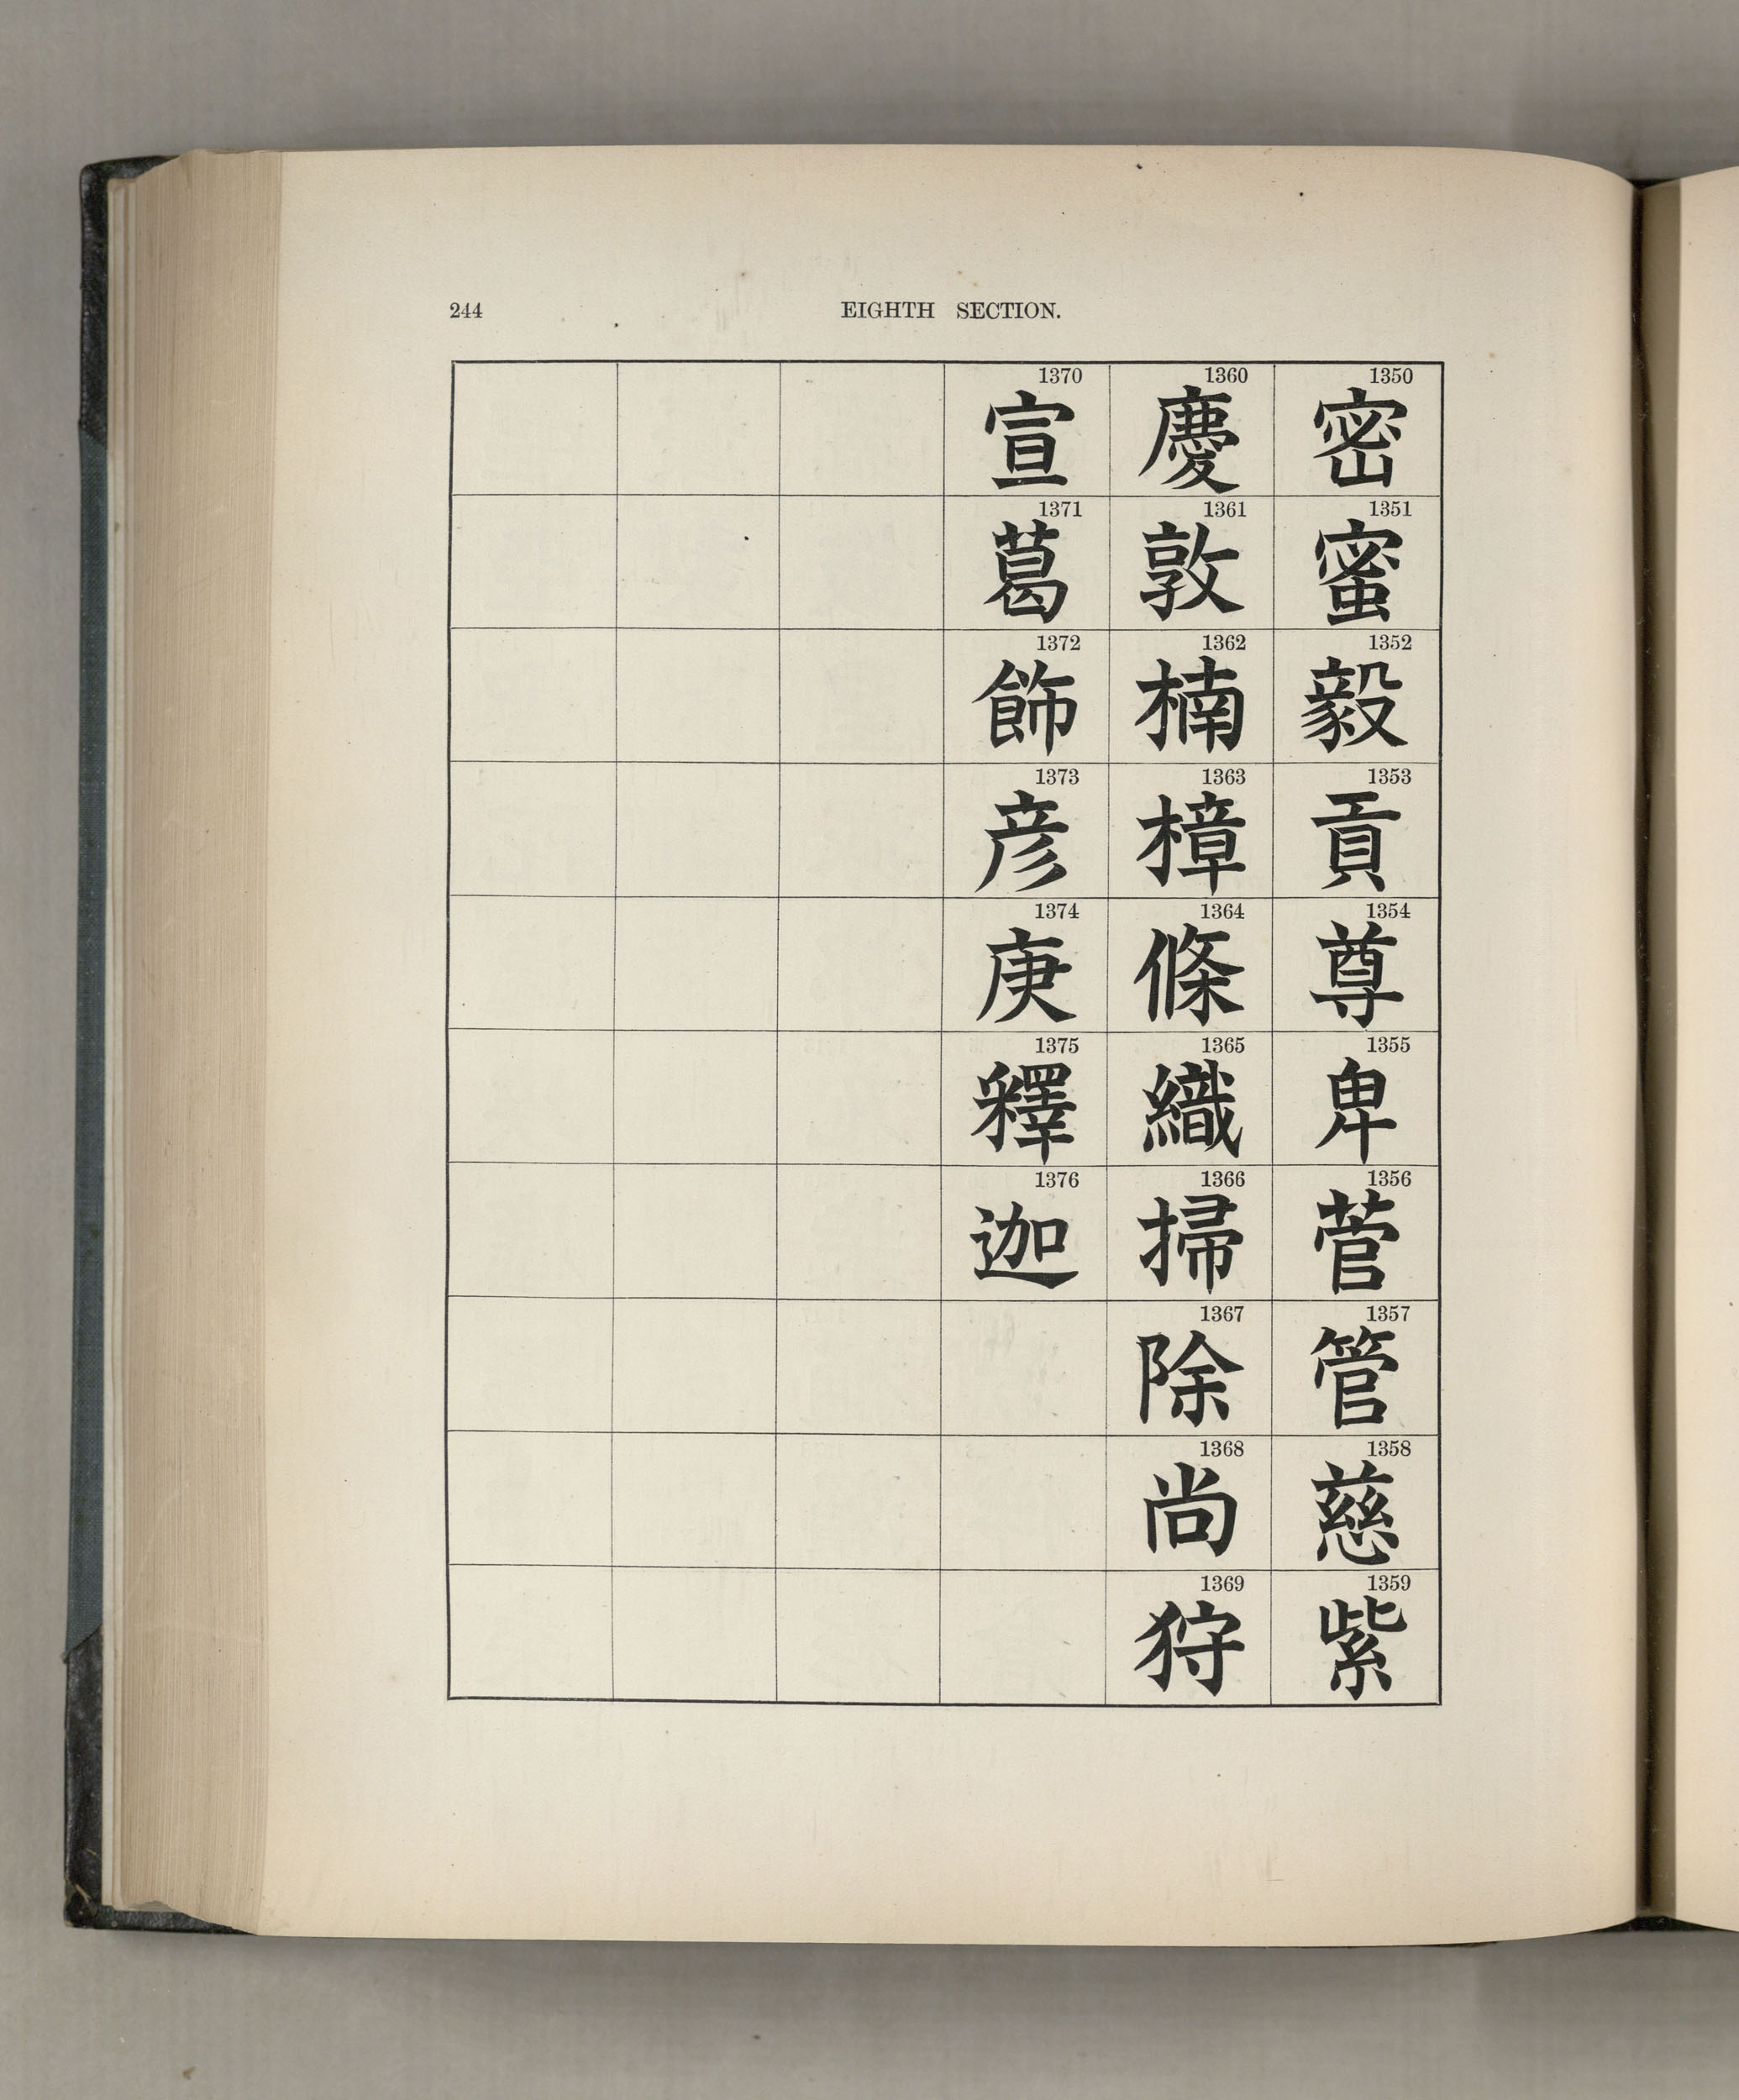 244 EIGHTH SECTION.
1350
密
1351
蜜
1352
毅
1353
貢
1354
尊
1355
卑
1356
菅
1357
管
1358
慈
1359
紫
1360
慶
1361
敦
1362
楠
1363
樟
1364
條
1365
織
1366
掃
1367
除
1368
尚
1369
狩
1370
宣
1371
葛
1372
飾
1373
彦
1374
庚
1375
釋
1376
迦